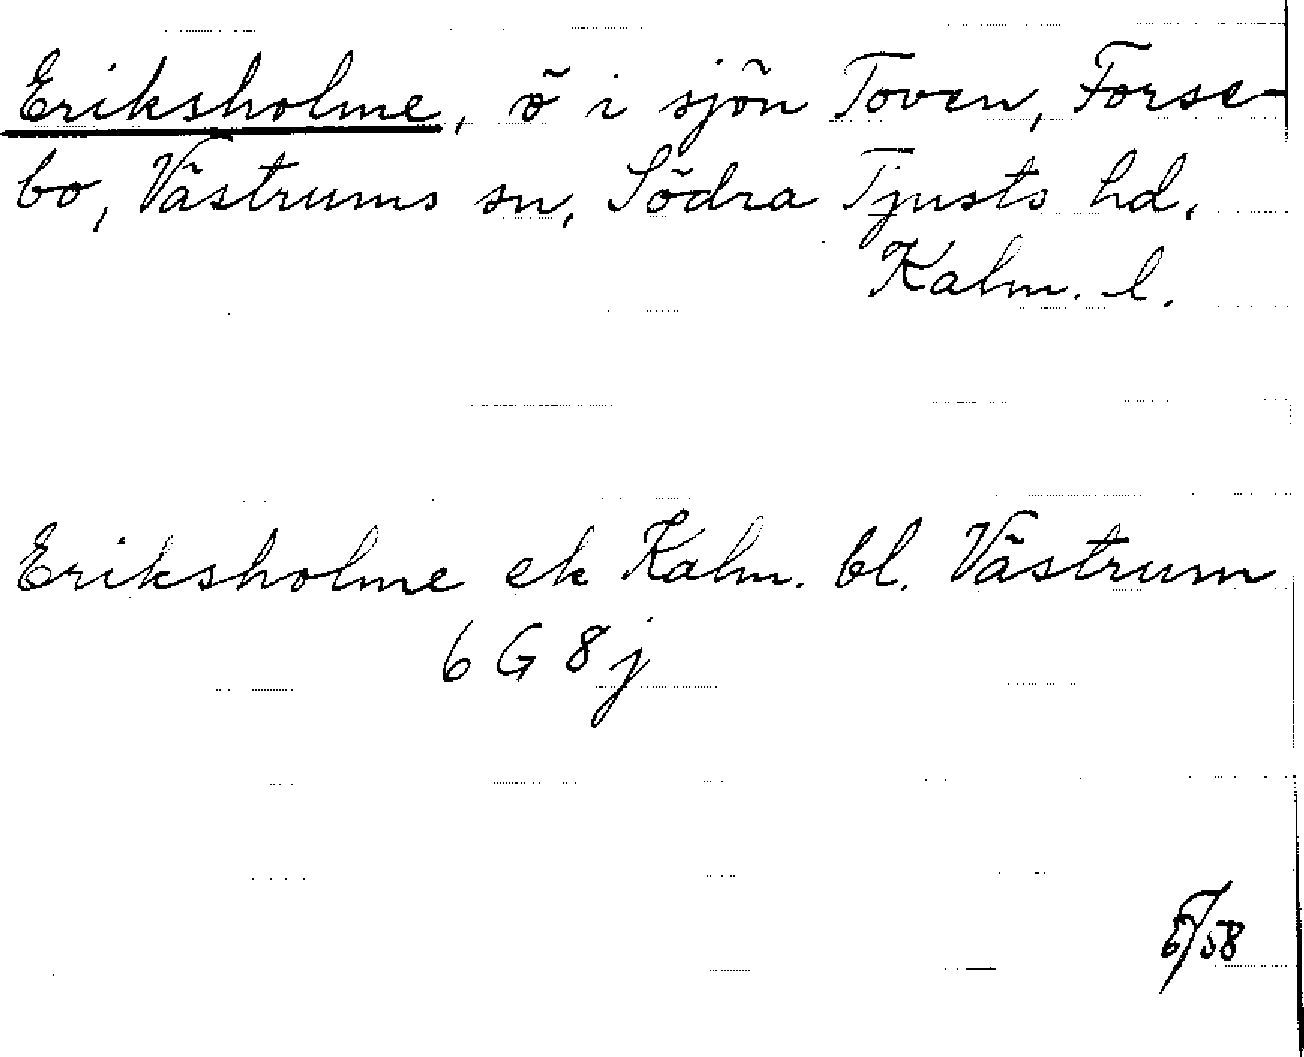 Eriksholme, ö i sjön Toven, Forse-
bo, Västrums sn, Södra Tjusts hd,
Kalm. l.
Eriksholme ek Kalm. bl. Västrum
6 G 8 j